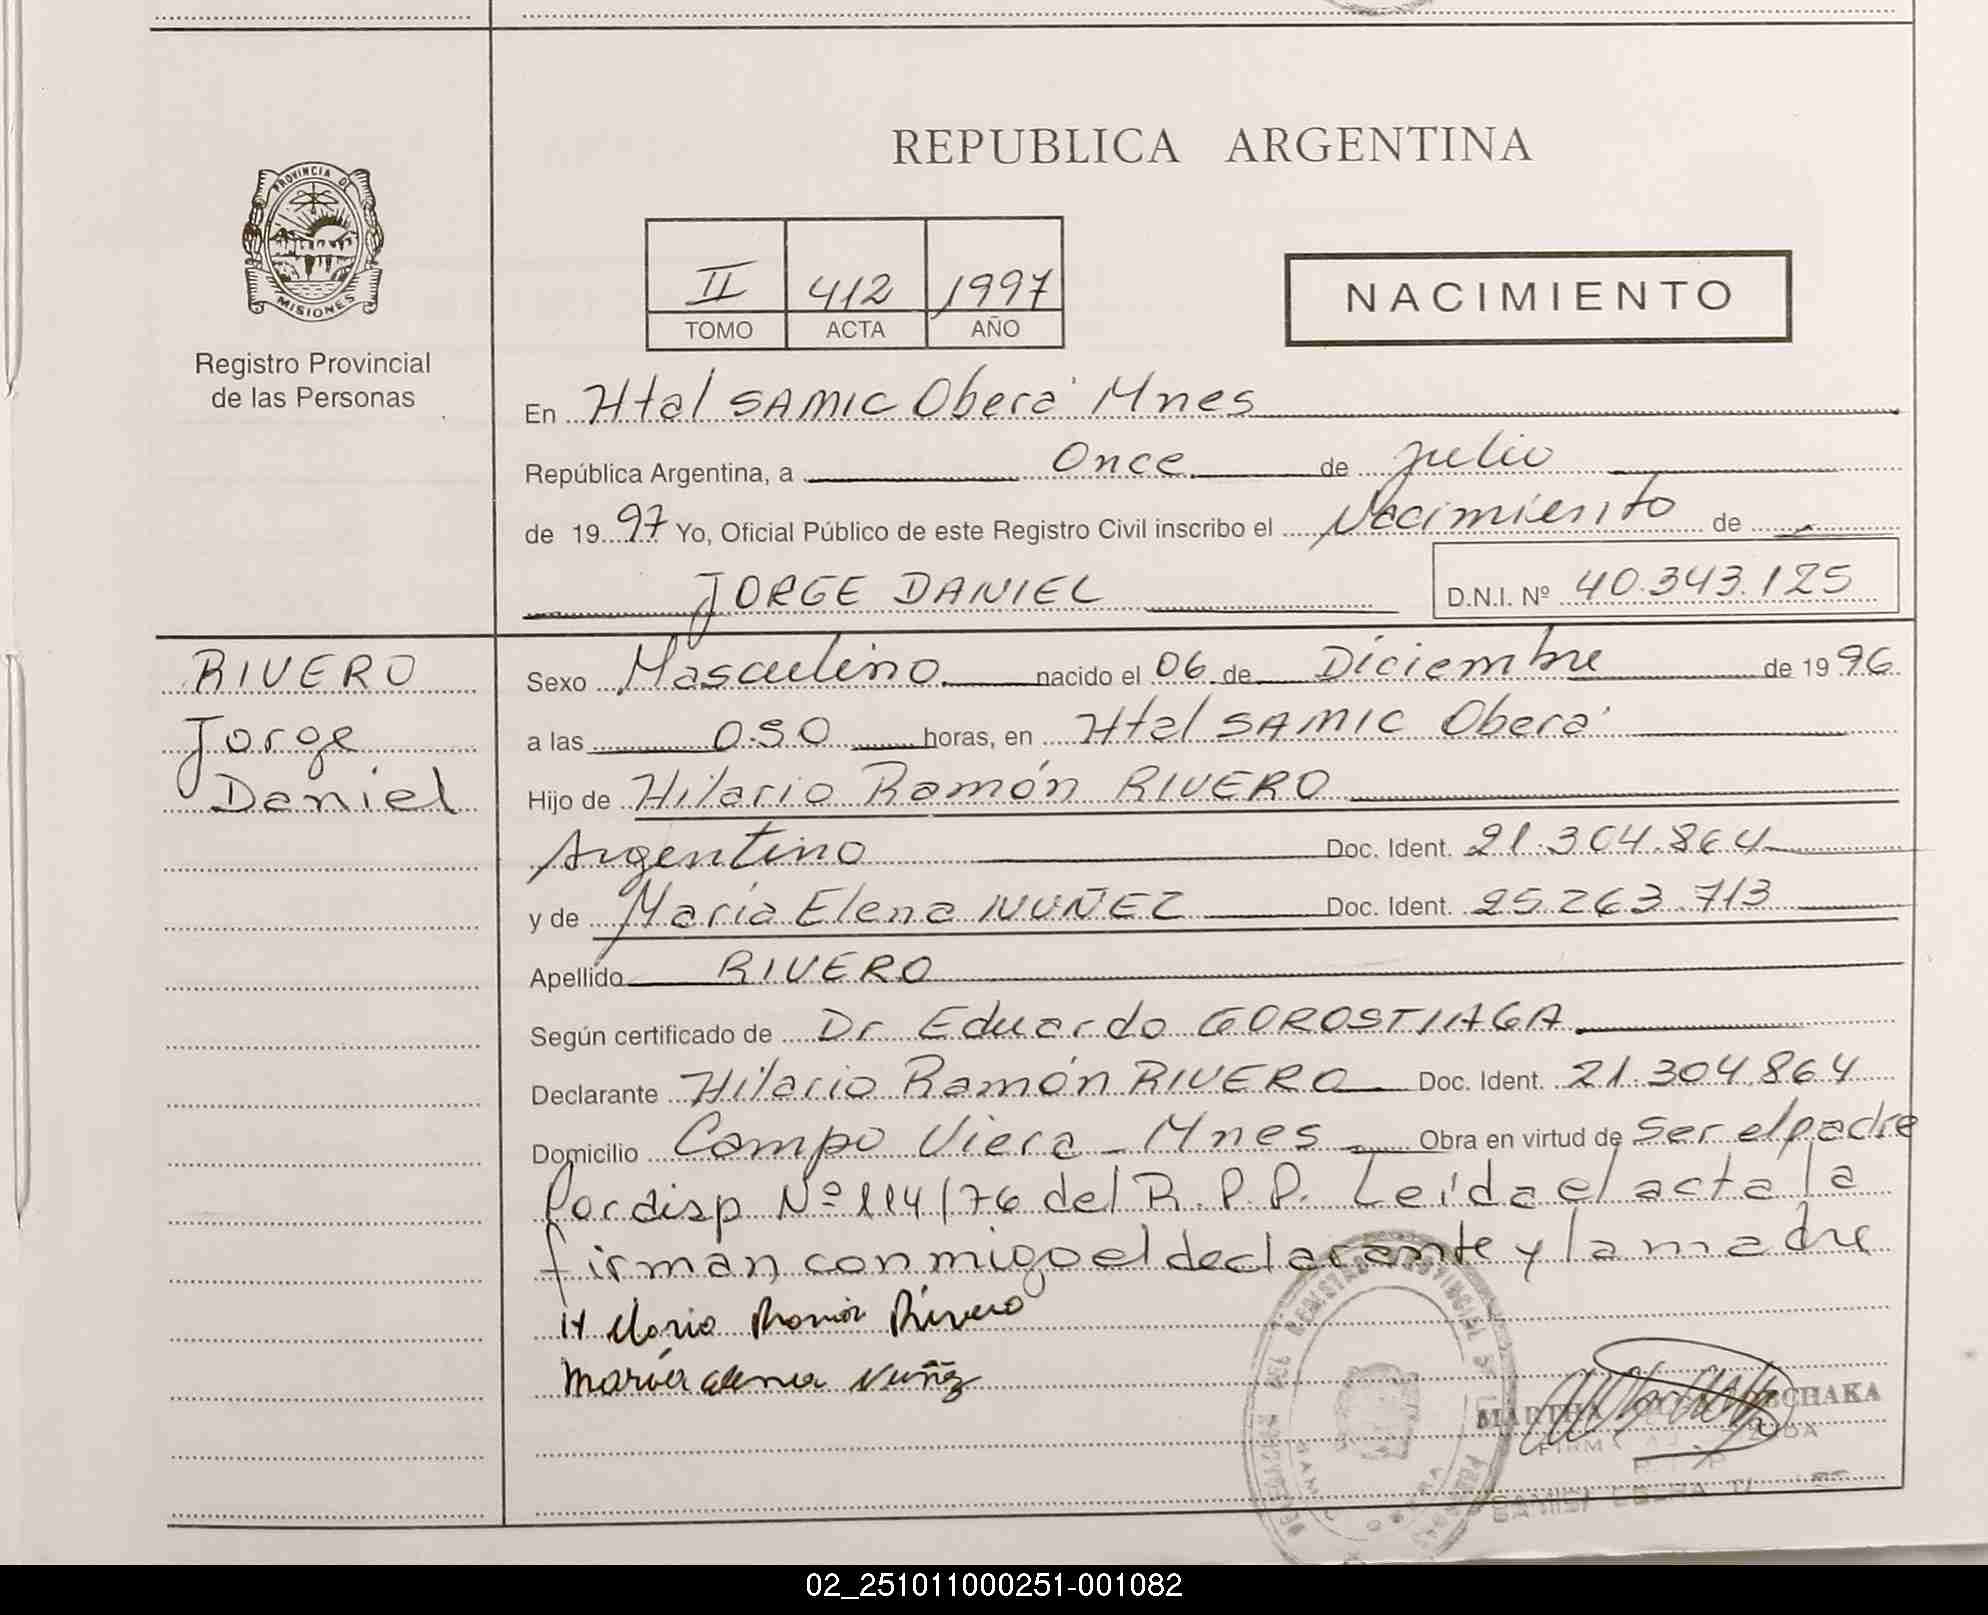 REPUBLICA ARGENTINA
PROVINCIA DE MISIONES
Registro Provincial
de las Personas
II 412 1997
TOMO ACTA AÑO
NACIMIENTO
En Htal SAMIC Oberá Mnes
República Argentina, a Once de Julio
de 1997 Yo, Oficial Público de este Registro Civil inscribo el Nacimiento de
JORGE DANIEL D.N.I. Nº 40.343.125
RIVERO
Jorge
Daniel
Sexo Masculino nacido el 06 de Diciembre de 1996
a las 0.50 horas, en Htal SAMIC Oberá
Hijo de Hilario Ramón RIVERO
Argentino Doc. Ident. 21.304.864
y de María Elena NUÑEZ Doc. Ident. 25.263.713
Apellido RIVERO
Según certificado de Dr Eduardo GOROSTIAGA
Declarante Hilario Ramón RIVERO Doc. Ident. 21.304.864
Domicilio Campo Viera - Mnes Obra en virtud de ser el padre
Por disp Nº 114/76 del R.P.P. Leída el acta la
firman conmigo el declarante y la madre
Hilario Ramón Rivero
María Elena Nuñez
MARTHA
FIRMA
02_251011000251-001082